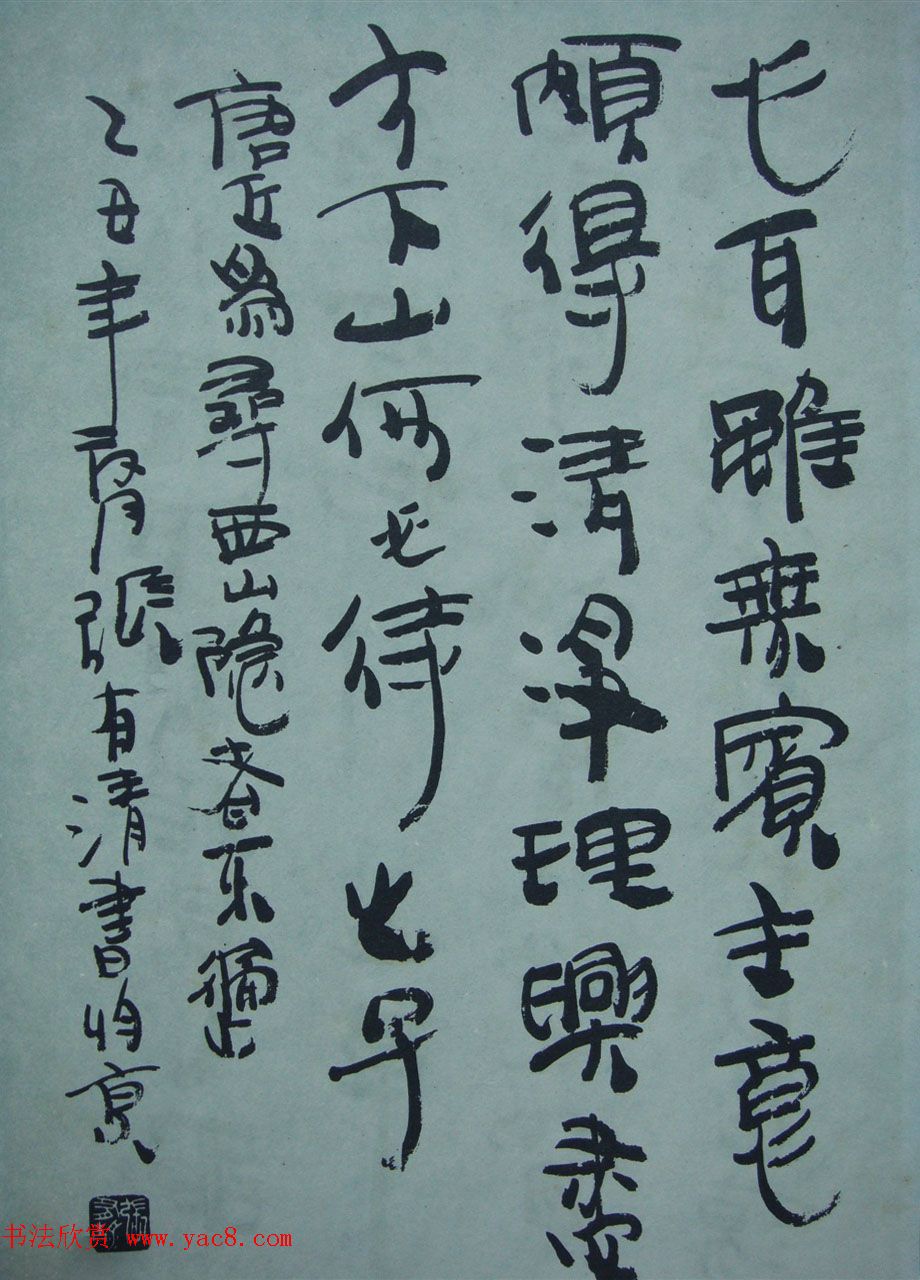 心耳雖無賓主意
頗得清淨理興盡
方下山何必待之子
唐丘為尋西山隱者不遇
乙丑年夏月張有清書於京
书法欣赏 www.yac8.com